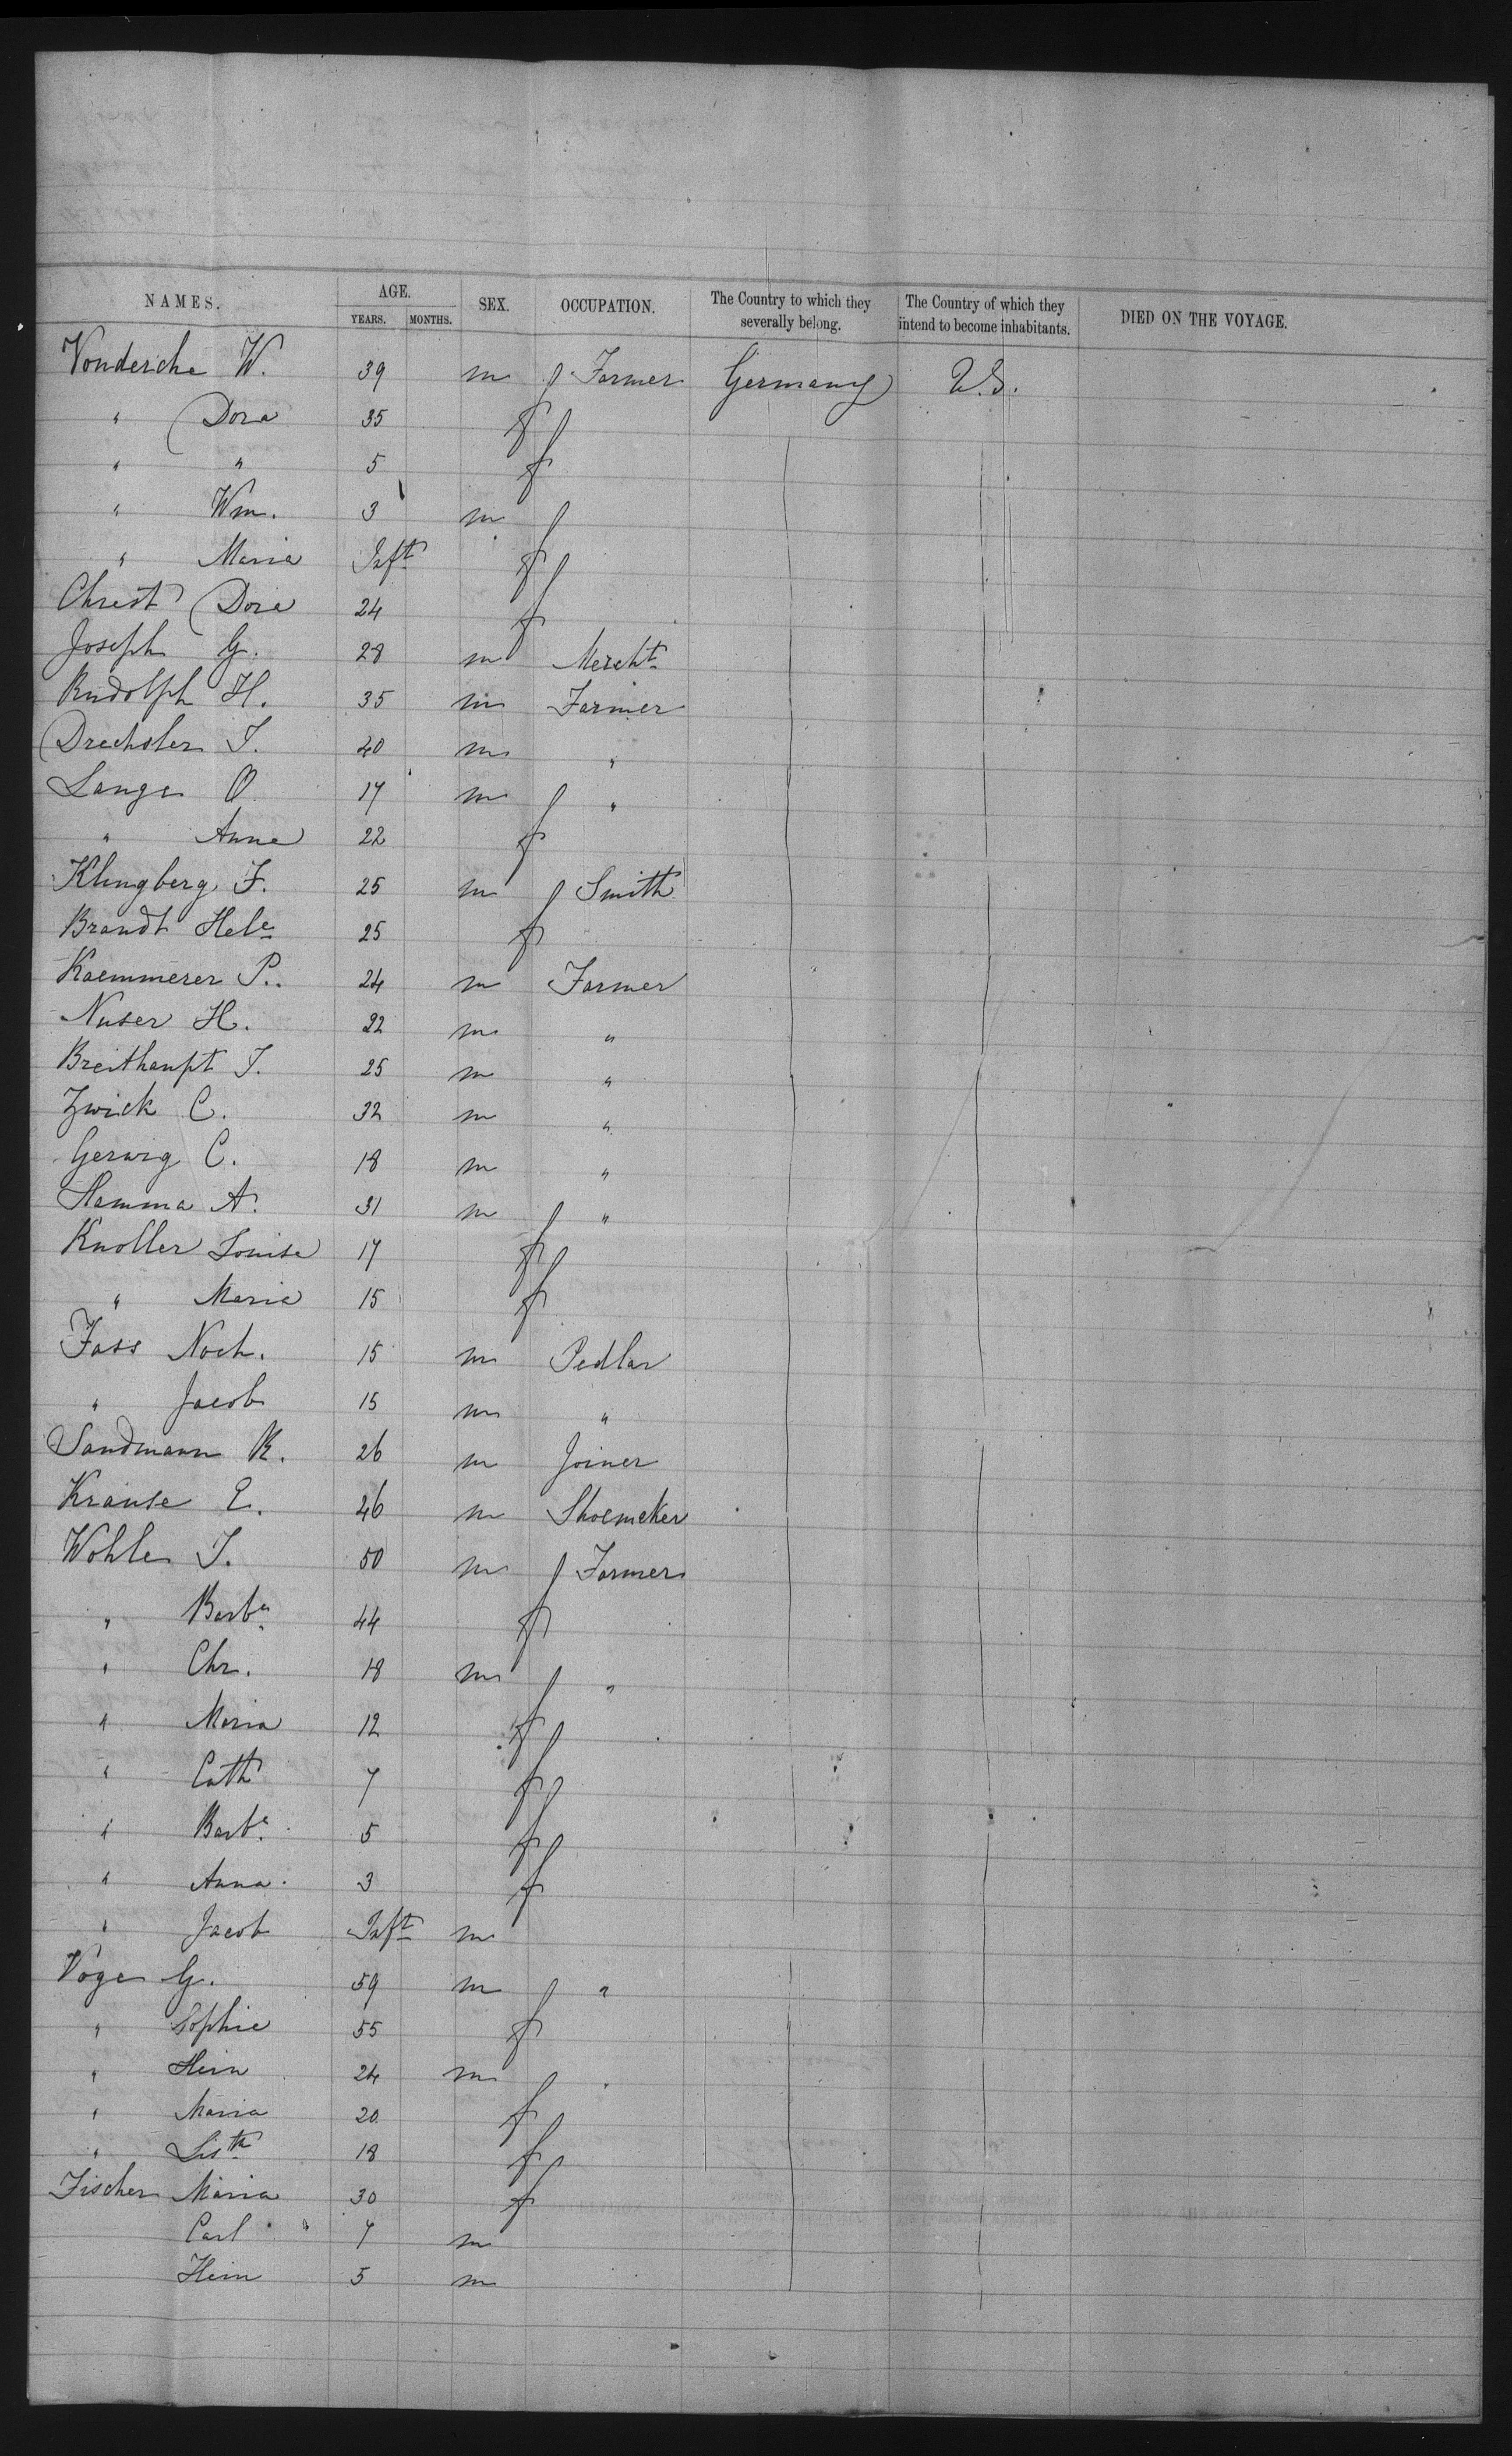 NAMES. AGE. SEX. OCCUPATION. The Country to which they severally belong. The Country of which they intend to become inhabitants. DIED ON THE VOYAGE.
YEARS. MONTHS.
Vondersche W. 39 m Farmer Germany U.S.
" Dora 35 f
" " 5 f
" Wm. 3 m
" Maria Inft f
Christ Dora 24 f
Joseph G. 28 m Mercht
Rudolph H. 35 m Farmer
Drechsler J. 40 m "
Lange O 17 m "
" Anna 22 f
Klingberg F. 25 m Smith
Brandt Hele 25 f
Kaemmerer P. 24 m Farmer
Nuser H. 22 m "
Breithaupt J. 25 m "
Zwick C. 32 m "
Gerwig C. 18 m "
Hamma A. 31 m "
Knoller Louise 17 f
" Maria 15 f
Fass Noch. 15 m Pedlar
" Jacob 15 m "
Sandmann K. 26 m Joiner
Krause E. 46 m Shoemaker
Wohle J. 50 m Farmer
" Barba 44 f
" Chr. 18 m "
" Maria 12 f
" Cath 7 f
" Barba 5 f
" Anna 3 f
" Jacob Inft m
Voge G. 59 m "
" Sophie 55 f
" Hein 24 m "
" Maria 20 f
" Listh 18 f
Fischer Maria 30 f
Carl 7 m
Hein 5 m